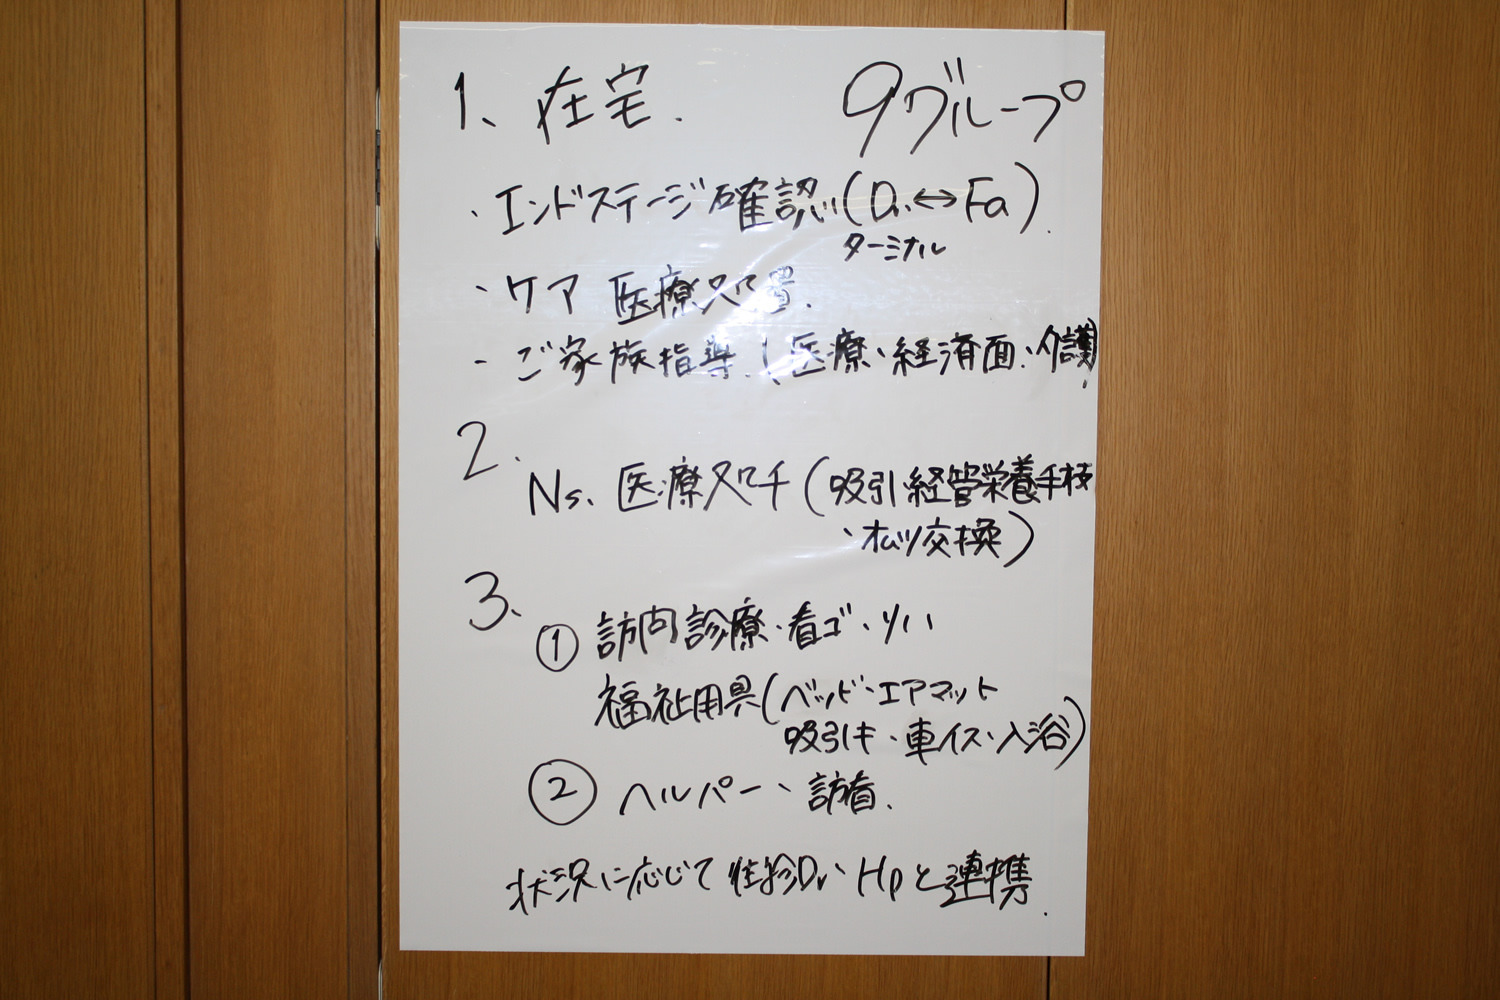 1、在宅. 9グループ
・エンドステージ確認(Dr.↔Fa).
ターミナル
・ケア 医療処置.
・ご家族指導.(医療、経済面、介護)
2.
Ns. 医療処チ(吸引、経管栄養手技
、オムツ交換)
3.
① 訪問診療・看ゴ・リハ
福祉用具(ベッド・エアマット
吸引キ・車イス・入浴)
② ヘルパー、訪看.
状況に応じて往診Dr、Hpと連携.